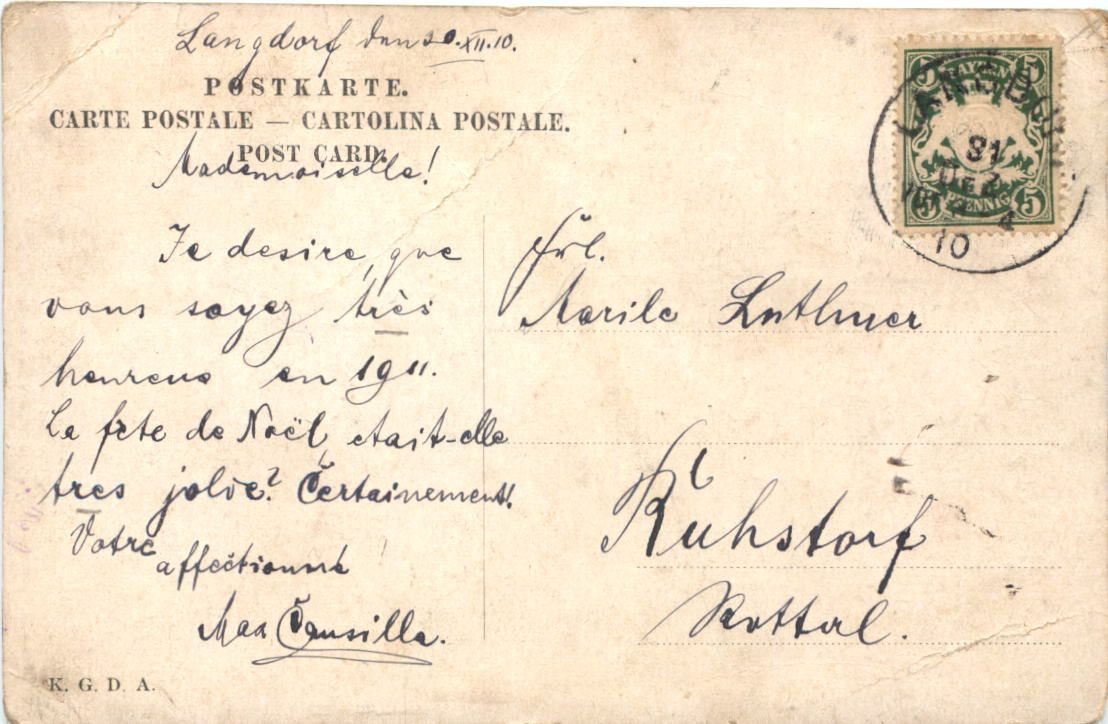 Langdorf den 30.XII.10.
POSTKARTE.
CARTE POSTALE — CARTOLINA POSTALE.
POST CARD.
Mademoiselle!
Je desire, que
vous soyez très
heureuse en 1911.
La fete de Noël, etait-elle
tres jolie? Certainement!
Votre
affectionné
Max
K. G. D. A.
BAYERN
5 5
31
DEZ
10
PFENNIG
5 5
Frl.
Marile Luthmer
Ruhstorf
Rottal.